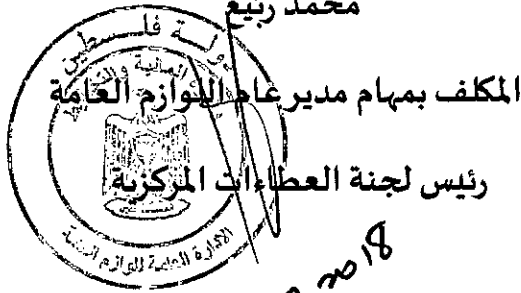 محمد ربيع
المكلف بمهام مدير عام اللوازم العامة
رئيس لجنة العطاءات المركزية
دولة فلسطين
المالية
الإدارة العامة للوازم العامة